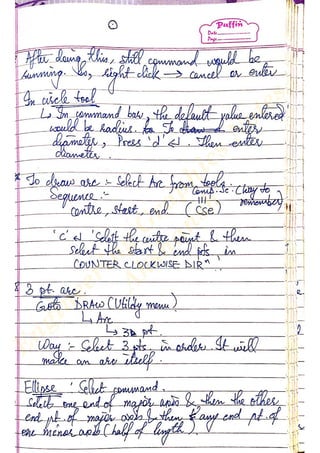 Puffin
Date
Page
After doing this, still command would be
running. So, right click → cancel or enter
In circle tool
↳ In command bar, the default value entered
would be radius. To draw enter
diameter, Press 'd' ↵. Then enter
diameter.
* To draw arc :- Select Arc from tools.
Sequence :- Comp. Sc. (way to
centre, start, end (CSE) remember)
'C' ↵ 'Select the centre point & then
select the start & end pts in
COUNTER CLOCKWISE DIRⁿ'.
3 pt. arc.
Goto DRAW (Utility menu)
↳ Arc
↳ 3 pt.
Way :- Select 3 pts. in order. It will
make an arc itself.
Ellipse 'Select command.
Select one end of major axis & then the other
end pt. of major axis & then any end pt. of
one minor axis (half of length).